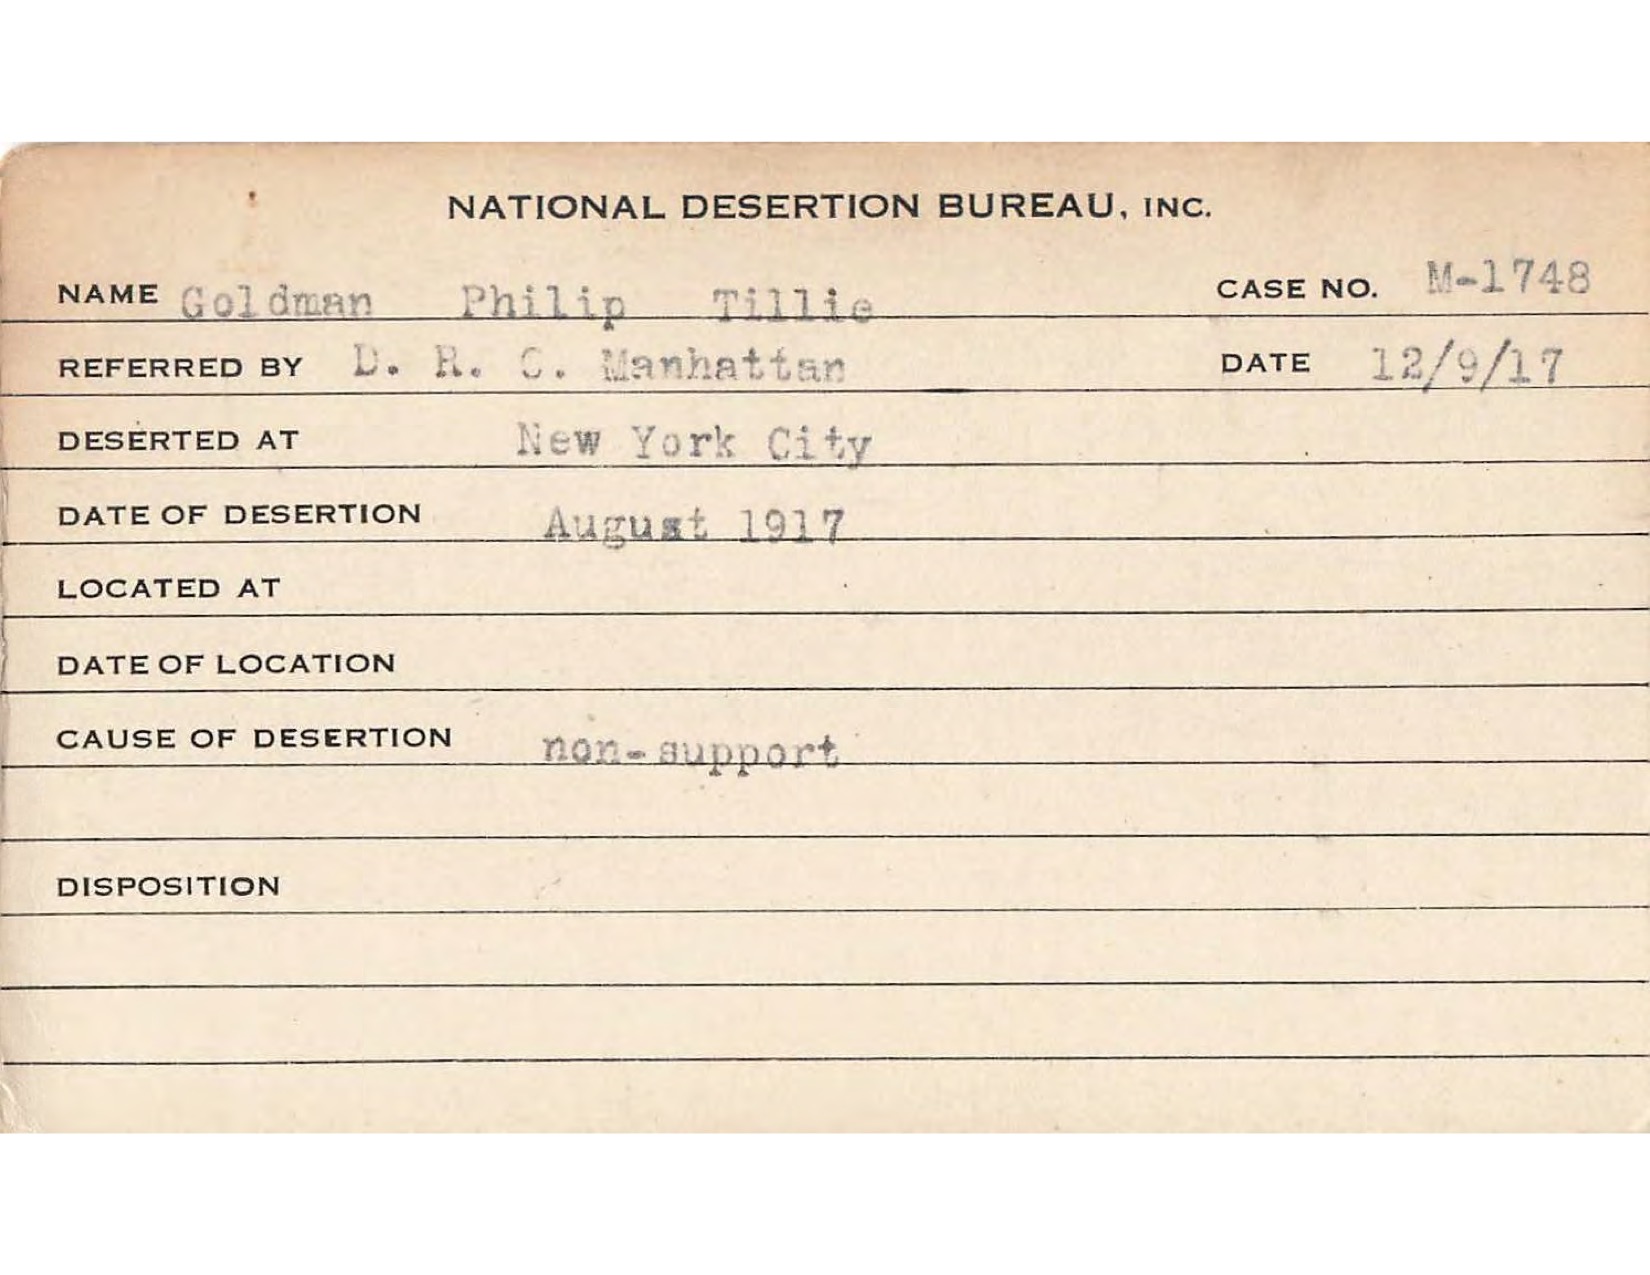 NATIONAL DESERTION BUREAU, INC.
NAME Goldman Philip Tillie CASE NO. M-1748
REFERRED BY D. R. C. Manhattan DATE 12/9/17
DESERTED AT New York City
DATE OF DESERTION August 1917
LOCATED AT
DATE OF LOCATION
CAUSE OF DESERTION non-support
DISPOSITION